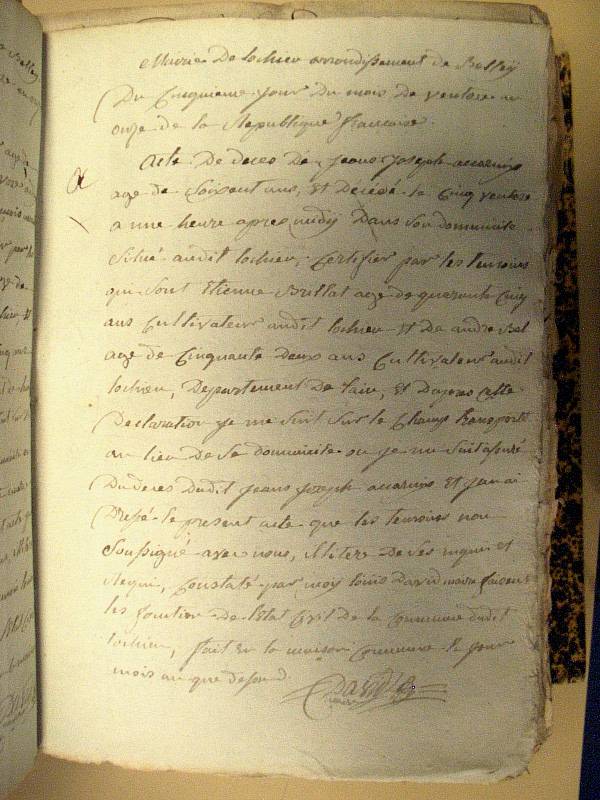 Mairie De lochieu arrondissement de Belley
Du Cinquieme jour du mois De ventose an
onze de la Republique francaise.
Acte De deces De jean Joseph
age de Soixant ans, Et Decedé le Cinq ventose
a une heure apres midy Dans Son dommicile
Situé audit lochieu, Certifier par les temoins
qui Sont Etienne Brillat age de quarante Cinq
ans Cultivateur audit lochieu Et De andre
age de Cinquante Deux ans Cultivateur audit
lochieu, Departement De lain, Et Dapres cette
Declaration je me Suit Sur le Champ transporté
au lieu De Se dommicile ou je me Suit assuré
Du deces Dudit jean joseph Et jan ai
Dressé le present acte que les temoins non
Soussigné avec nous, illiterè De Ses enquis et
Requi, Constaté par moy louis David maire faisant
les fontion de letat Civil de la Commune dudit
lochieu, fait En la maison Commune le jour
mois an que dessus
David
maire